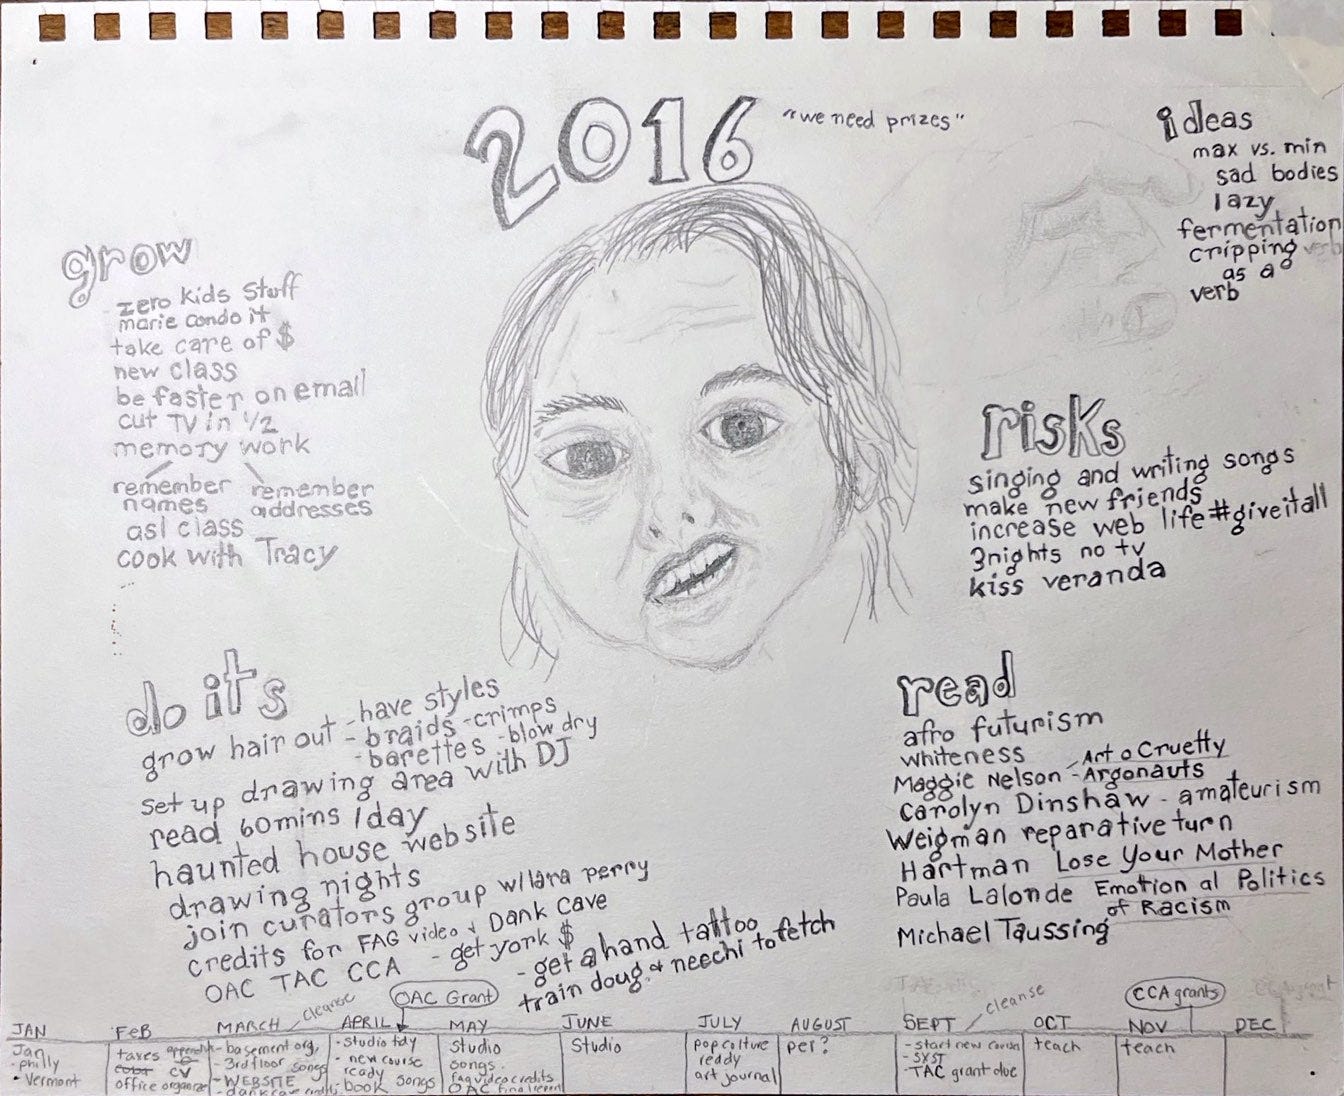 2016
"we need prizes"
ideas
max vs. min
sad bodies
lazy
fermentation
cripping
as a
verb
grow
zero kids stuff
marie condo it
take care of $
new class
be faster on email
cut TV in 1/2
memory work
remember names
remember addresses
asl class
cook with Tracy
risks
singing and writing songs
make new friends
increase web life #giveitall
3nights no tv
kiss veranda
do it's
grow hair out - have styles
- braids - crimps
- barettes - blow dry
set up drawing area with DJ
read 60mins / day
haunted house website
drawing nights
join curators group w/ lara perry
credits for FAG video + Dank Cave
OAC TAC CCA - get york $
- get a hand tattoo
train doug + neechi to fetch
read
afro futurism
whiteness
Maggie Nelson - Art o Cruelty
- Argonauts
Carolyn Dinshaw - amateurism
Weigman reparative turn
Hartman Lose Your Mother
Paula Lalonde Emotional Politics
of Racism
Michael Taussing
cleanse
OAC Grant
cleanse
CCA grants
JAN FEB MARCH APRIL MAY JUNE JULY AUGUST SEPT OCT NOV DEC
Jan
- philly
• Vermont
taxes
CV
office
- basement org,
- 3rd floor songs
- WEBSITE
- studio tidy
- new course
ready
book songs
studio
songs.
fag video credits
OAC final report
Studio
pop culture
reddy
art journal
per?
- start new
- SXST
- TAC grant due
teach
teach